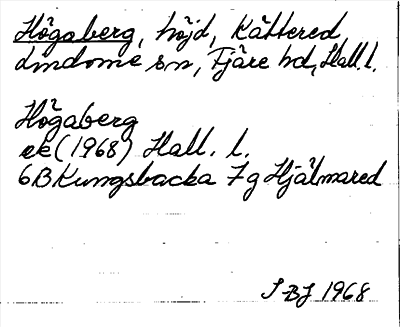 Högaberg, höjd, Kåttered,
Lindome sn, Fjäre hd, Hall. l.
Högaberg
ek (1968) Hall. l.
6B Kungsbacka 7g Hjälmared
S BJ 1968